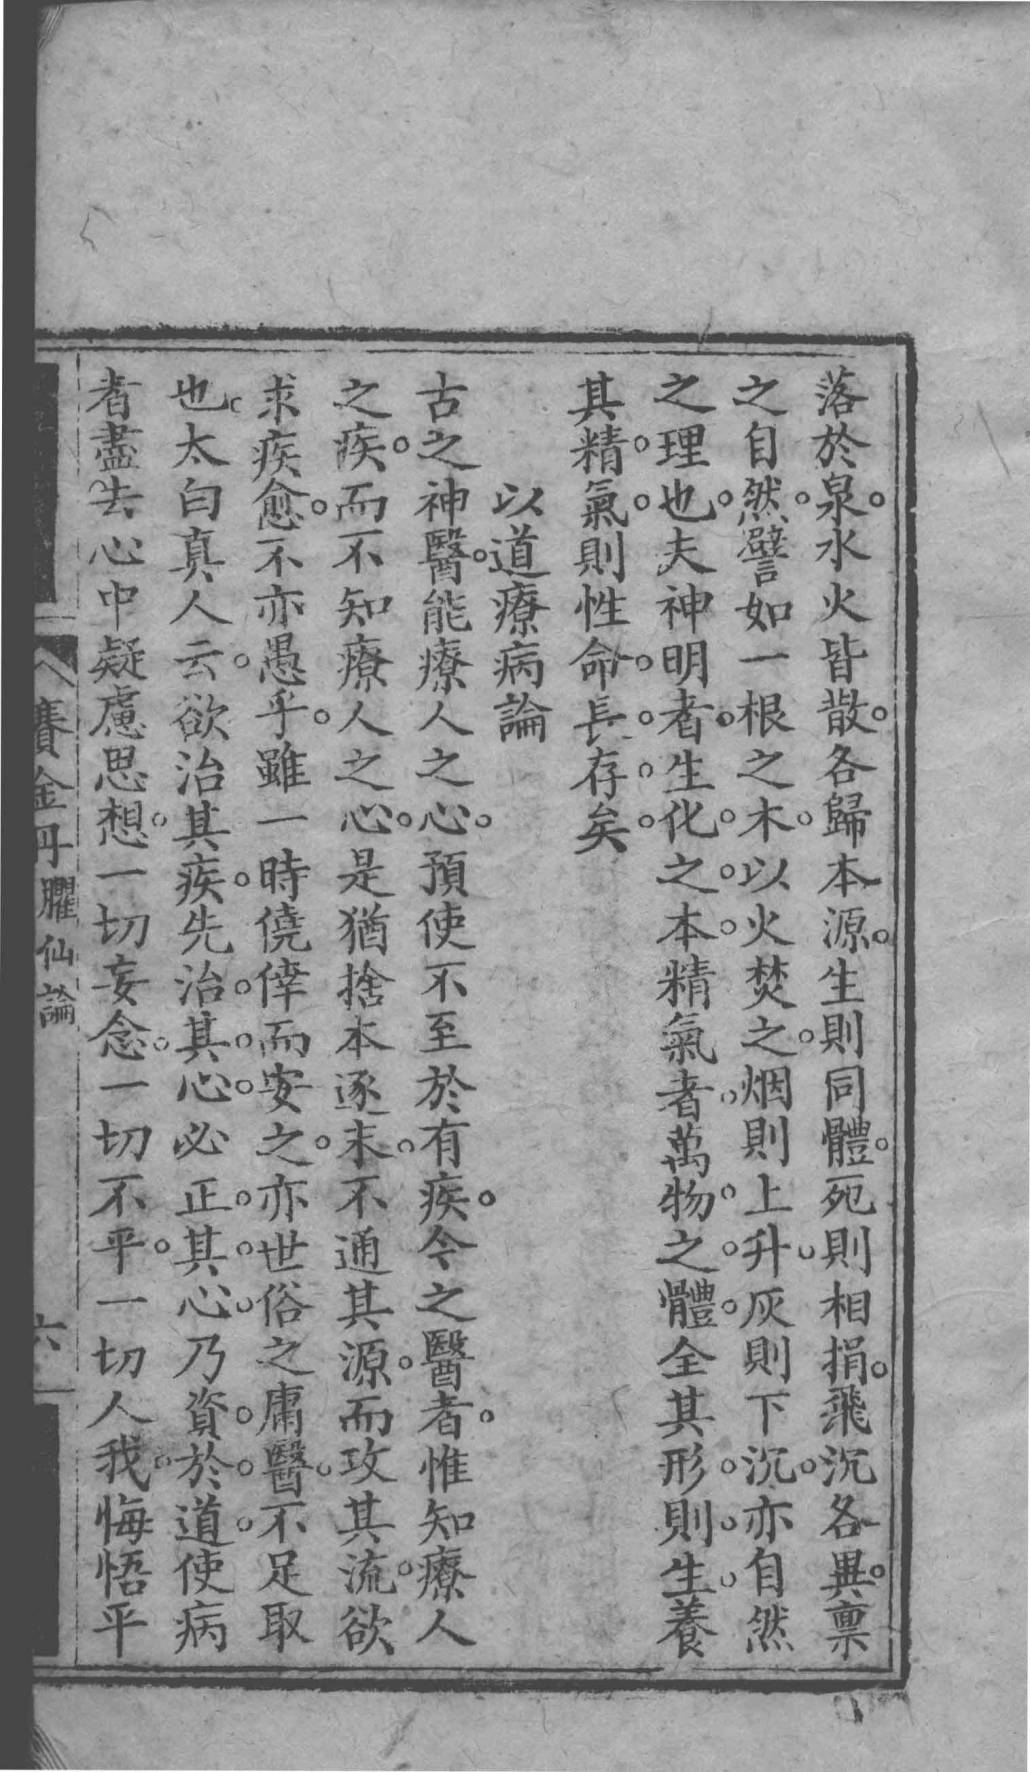 落於泉水火皆散各歸本源生則同體死則相捐飛沉各異禀
之自然譬如一根之木以火焚之烟則上升灰則下沉亦自然
之理也夫神明者生化之本精氣者萬物之體全其形則生養
其精氣則性命長存矣
以道療病論
古之神醫能療人之心預使不至於有疾今之醫者惟知療人
之疾而不知療人之心是猶捨本逐末不通其源而攻其流欲
求疾愈不亦愚乎雖一時僥倖而安之亦世俗之庸醫不足取
也太白真人云欲治其疾先治其心必正其心乃資於道使病
者盡去心中疑慮思想一切妄念一切不平一切人我悔悟平
賽金丹臞仙論
六